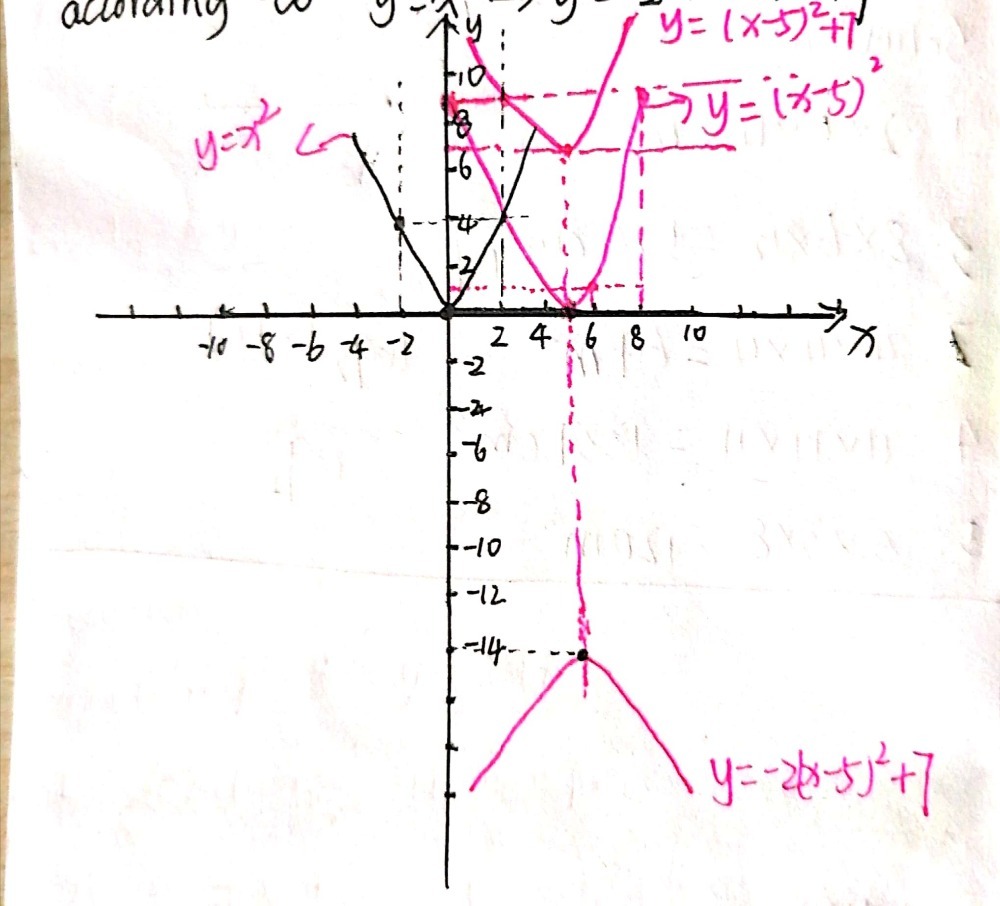 according to y=x² → y=
y
y=(x-5)²+7
10
y=(x-5)²
8
y=x²
6
4
2
-10 -8 -6 -4 -2 2 4 6 8 10 x
-2
-4
-6
-8
-10
-12
-14
y=-2(x-5)²+7